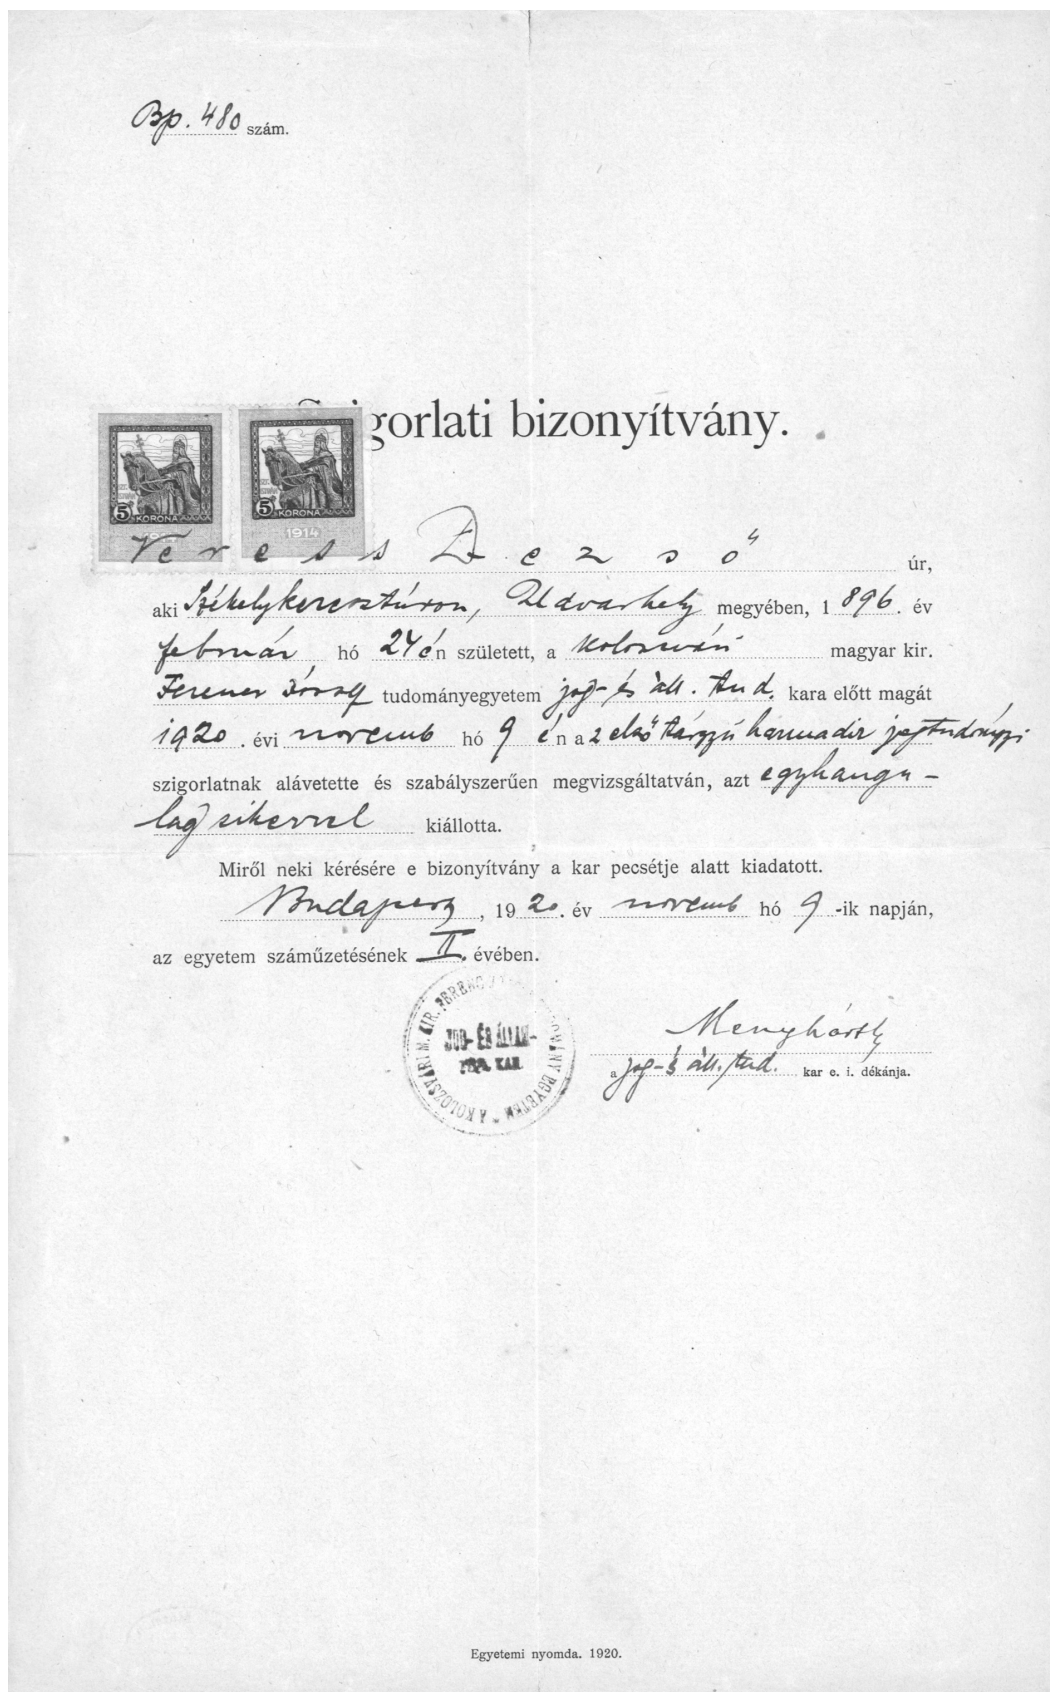 Bp. 480 szám.
Szigorlati bizonyítvány.
5 KORONA
1914
5 KORONA
1914
Veress Dezső úr,
aki Székelykeresztúron, Udvarhely megyében, 1896. év
február hó 24 én született, a kolozsvári magyar kir.
Ferencz József tudományegyetem jog- és áll. tud. kara előtt magát
1920. évi novemb hó 9 én az első tárgyú harmadik jogtudományi
szigorlatnak alávetette és szabályszerűen megvizsgáltatván, azt egyhangu-
lag sikerrel kiállotta.
Miről neki kérésére e bizonyítvány a kar pecsétje alatt kiadatott.
Budapest, 1920. év novemb hó 9-ik napján,
az egyetem száműzetésének II. évében.
A KOLOZSVÁRI M. KIR. FERENC
EGYETEM
JOG- ÉS ÁLLAM-
TUD. KAR
Menyhárth
a jog- és áll. tud. kar e. i. dékánja.
Egyetemi nyomda. 1920.